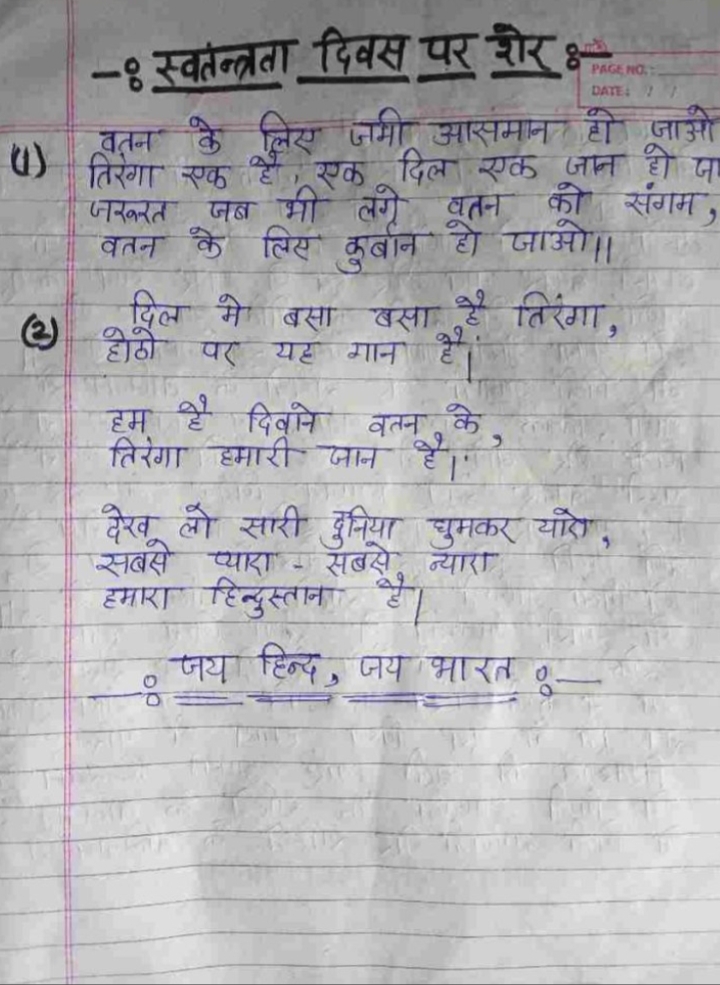 -: स्वतन्त्रता दिवस पर शेर :-
PAGE NO.:
DATE: / /
(1) वतन के लिए जमी आसमान हो जाओ
तिरंगा एक है, एक दिल एक जान हो जा
जरूरत जब भी लगे वतन को संगम,
वतन के लिए कुर्बान हो जाओ॥
(2) दिल मे बसा बसा है तिरंगा,
होठो पर यह गान है।
हम है दिवाने वतन के,
तिरंगा हमारी जान है।
देख लो सारी दुनिया घुमकर यारो,
सबसे प्यारा - सबसे न्यारा
हमारा हिन्दुस्तान है।
-: जय हिन्द, जय भारत :-